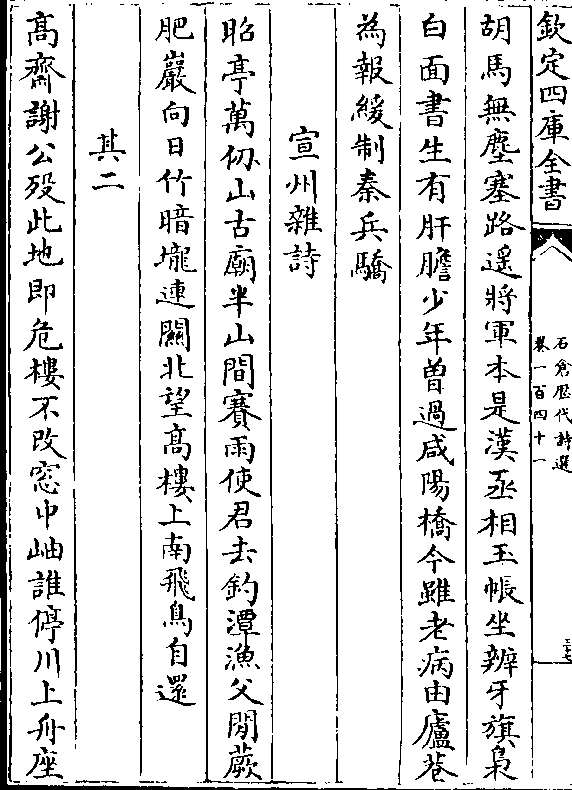 欽定四庫全書
石倉歷代詩選
卷一百四十一
胡馬無塵塞路遥將軍本是漢丞相玉帳坐辨牙旗梟
白面書生有肝膽少年曽過咸陽橋今雖老病由廬巷
為報緩制秦兵驕
宣州雜詩
昭亭萬仞山古廟半山間賽雨使君去釣潭漁父閒蕨
肥巖向日竹暗壠連關北望髙樓上南飛鳥自還
其二
髙齋謝公歿此地即危樓不改窓中岫誰停川上舟座